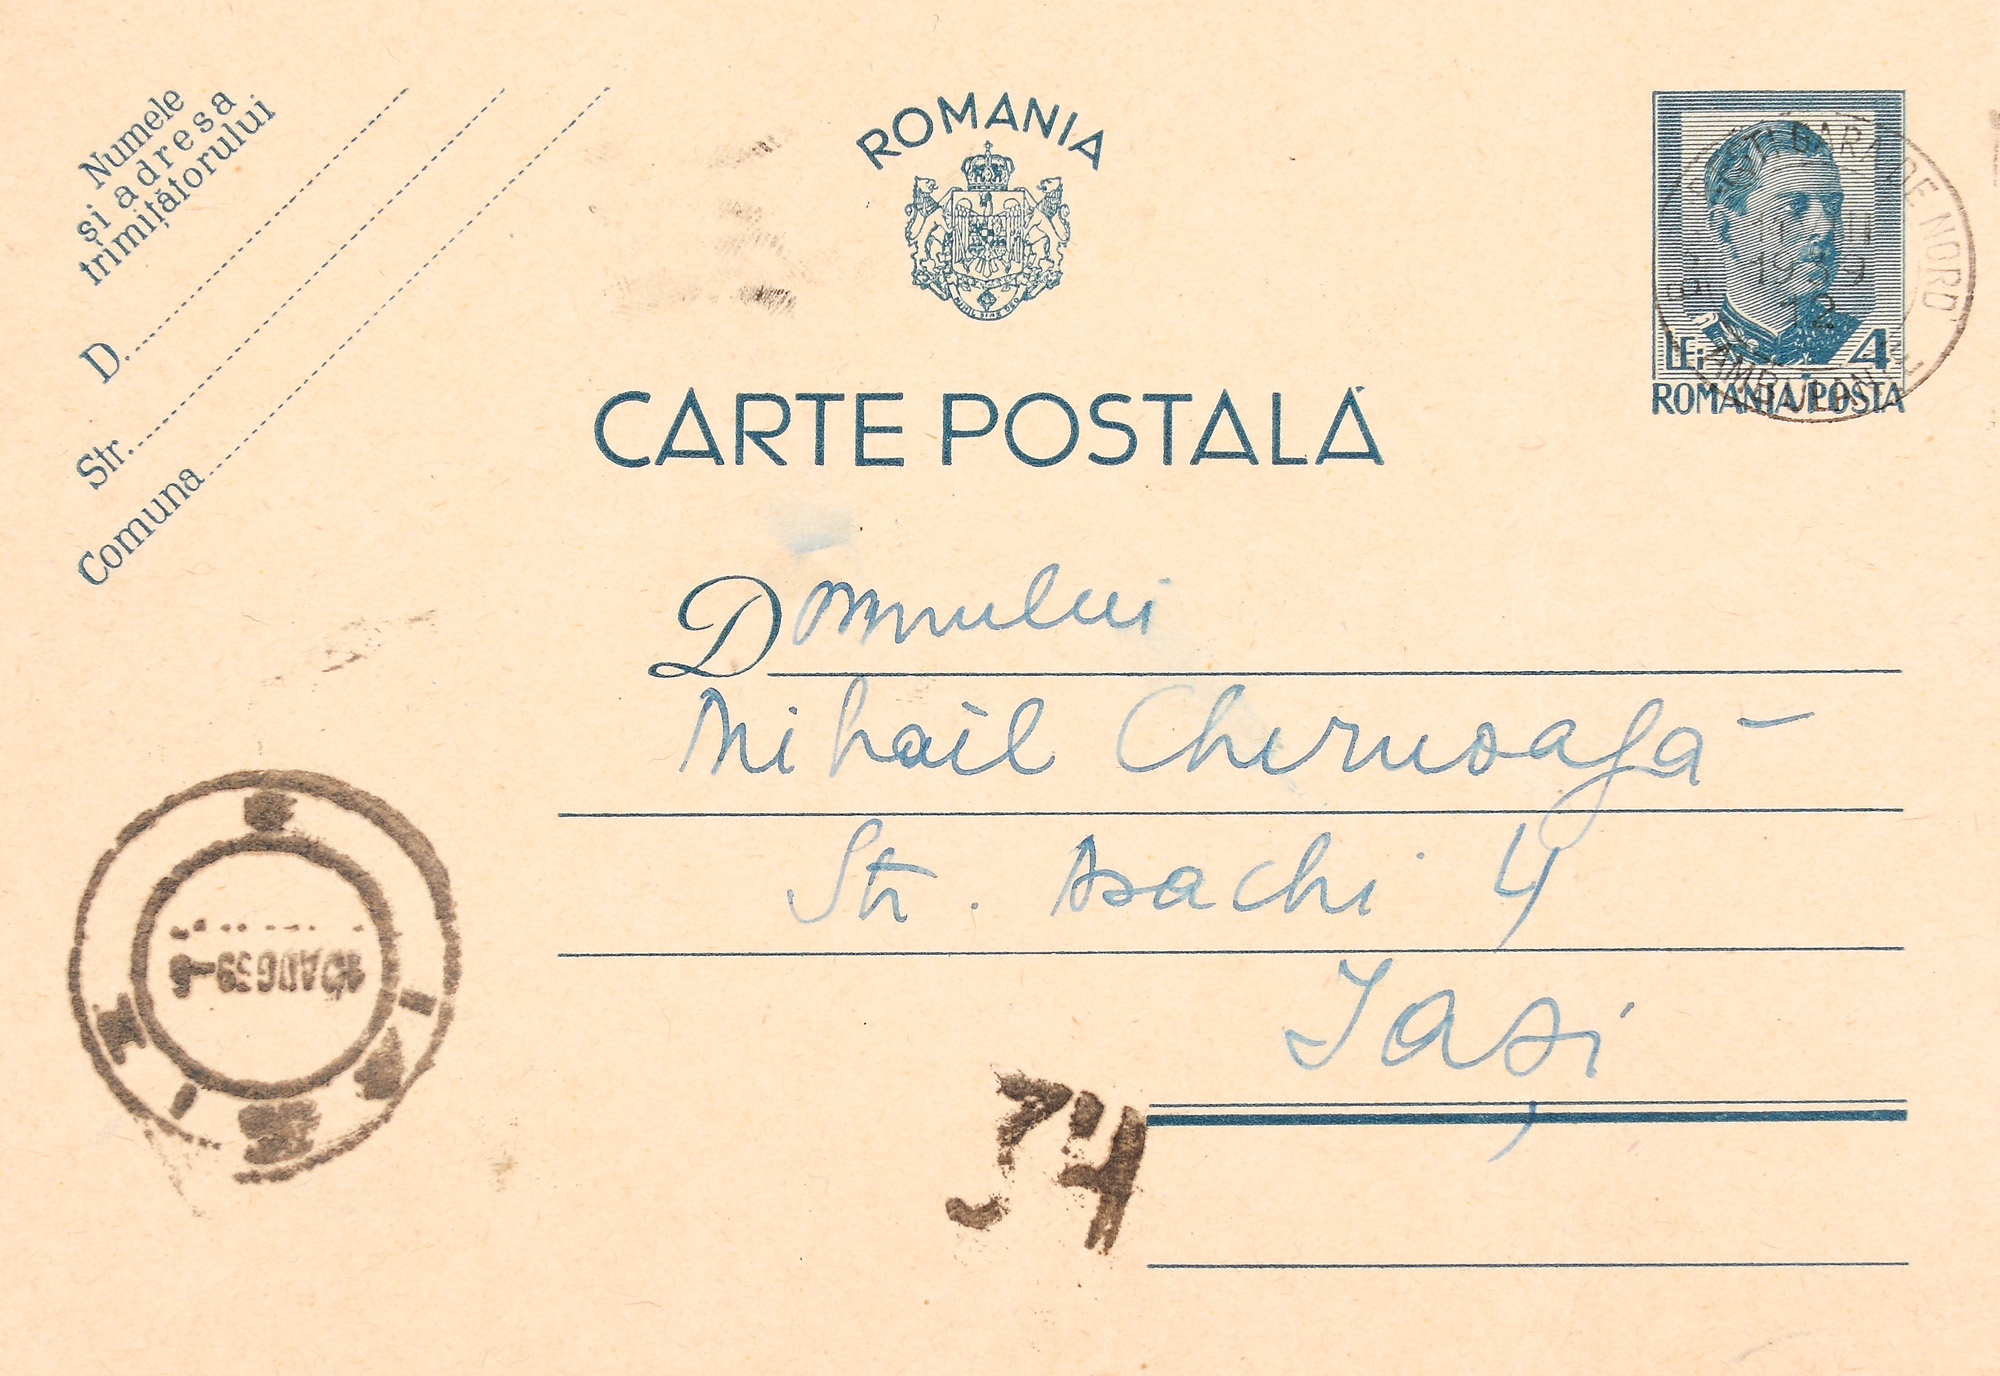 Numele
și adresa
trimițătorului
D.
Str.
Comuna
ROMANIA
NIHIL SINE DEO
CARTE POSTALĂ
LEI 4
ROMANIA POSTA
GARA DE NORD
1939
12
Domnului
Mihail
Str. Asachi 4
Iași
AUG 39
74